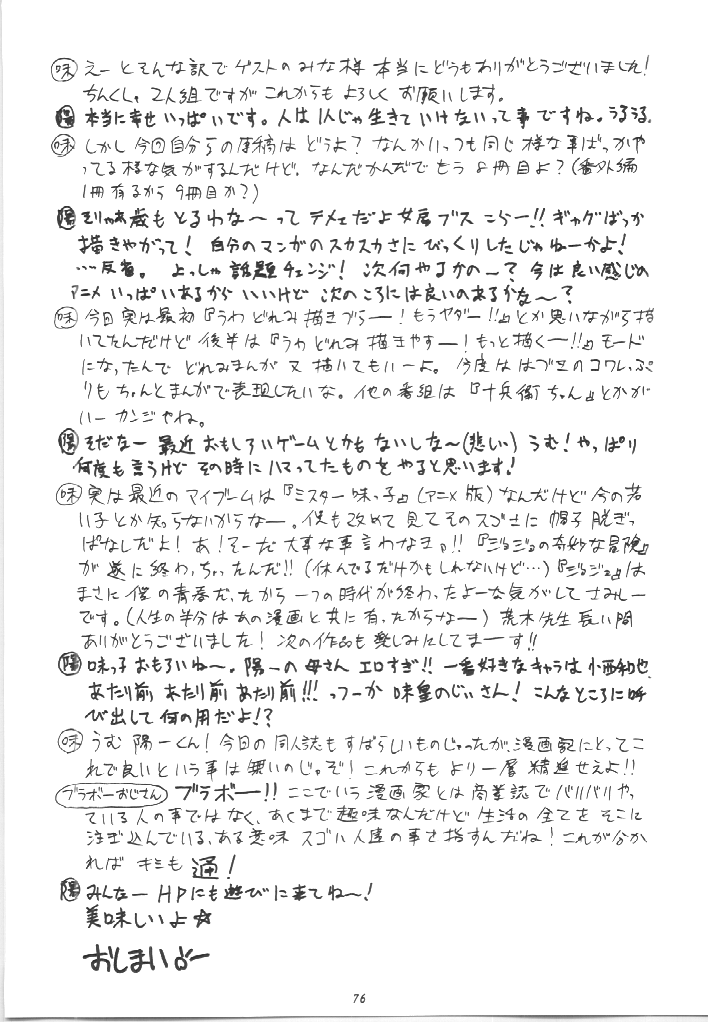 味 えーとそんな訳でゲストのみな様本当にどうもありがとうございました!
ちんくし。2人組ですがこれからもよろしくお願いします。
陽 本当に幸せいっぱいです。人は1人じゃ生きていけないって事ですね。うるうる。
味 しかし今回自分らの原稿はどうよ?なんかいつも同じ様な事ばっかや
ってる様な気がするんだけど。なんだかんだでもう8冊目よ?(番外編
1冊有るから9冊目か?)
陽 そりゃあ歳もとるわな〜ってテメェだよ女房ブスこらー!!ギャグばっか
描きやがって! 自分のマンガのスカスカさにびっくりしたじゃねーかよ!
…反省。 よっしゃ話題チェンジ! 次何やるかの〜? 今は良い感じの
アニメいっぱいあるからいいけど 次のころには良いのあるかな〜?
味 今回実は最初『うわどれみ描きづらー!もうヤダー!!』とか思いながら描
いてたんだけど後半は『うわどれみ描きやすー!もっと描くー!!』モード
になったんでどれみまんが又描いてもいーよ。 今度ははづきのコワレっぷ
りもちゃんとまんがで表現したいな。他の番組は『十兵衛ちゃん』とかが
いーカンジやね。
陽 そだなー 最近おもしろいゲームとかもないしな〜(悲しい) うむ!やっぱり
何度も言うけど その時にハマってたものをやると思います!
味 実は最近のマイブームは『ミスター味っ子』(アニメ版)なんだけど今の若
い子とか知らないからなー。僕も改めて見てそのスゴさに帽子脱ぎっ
ぱなしだよ! あ!そーだ大事な事言わなきゃ!!『ジョジョの奇妙な冒険』
が遂に終わっちゃったんだ!!(休んでるだけかもしれないけど…)『ジョジョ』は
まさに僕の青春だったから一つの時代が終わったよーな気がしてさみしー
です。(人生の半分はあの漫画と共に有ったからなー) 荒木先生長い間
ありがとうございました! 次の作品も楽しみにしてまーす!!
陽 味っ子おもろいね〜。陽一の母さんエロすぎ!! 一番好きなキャラは小西和也
あたり前 あたり前 あたり前!!! っつーか 味皇のじいさん! こんなところに呼
び出して何の用だよ!?
味 うむ陽一くん!今回の同人誌もすばらしいものじゃったが、漫画家にとってこ
れで良いという事は無いのじゃぞ!これからもより一層精進せえよ!!
ブラボーおじさん ブラボー!! ここでいう漫画家とは商業誌でバリバリやっ
ている人の事ではなく、あくまで趣味なんだけど生活の全てをそこに
注ぎ込んでいる、ある意味スゴい人達の事を指すんだね!これが分か
れば キミも 通!
陽 みんなー HPにも遊びに来てね〜!
美味しいよ☆
おしまい
76